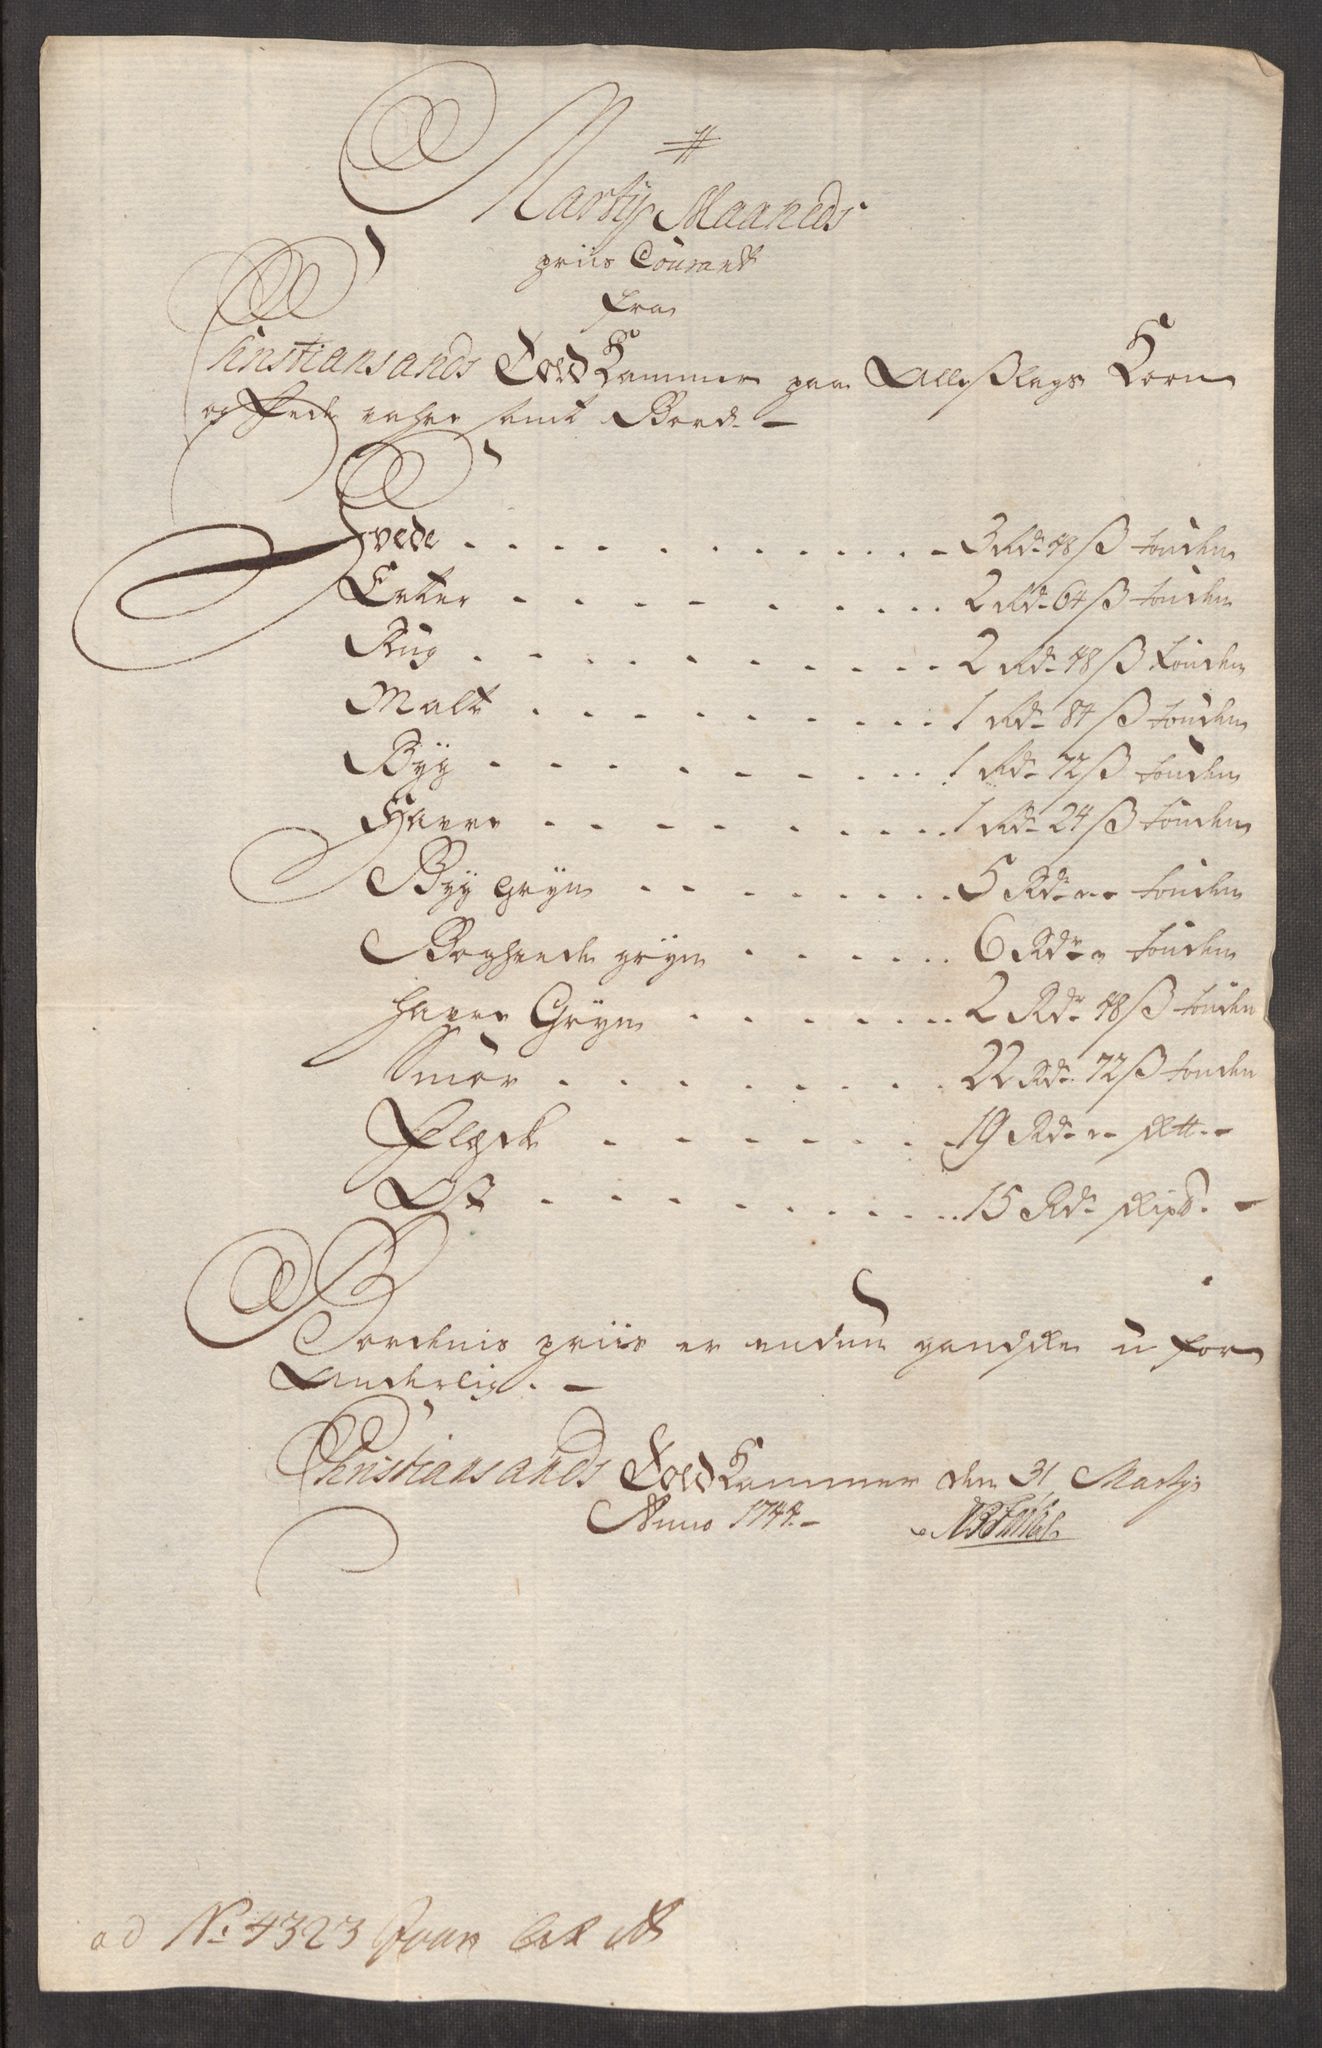 Martÿ Maaneds
priis Courant
fra
Christiansands Told Kammer paa Alle slags Korn
og fede vahre samt Bord
Hvede 3 Rdr 48 ß tønden
Erter 2 Rdr 64 ß tønden
Rug 2 Rdr 48 ß tønden
Malt 1 Rdr 84 ß tønden
Byg 1 Rdr 72 ß tønden
Havre 1 Rdr 24 ß tønden
Byg gryn 5 Rdr tønden
Boghvede gryn 6 Rdr tønden
havre Gryn 2 Rdr 48 ß tønden
Smør 22 Rdr 72 ß tønden
Flesk 19 Rdr
Ost 15 Rdr skip℔
Bordenis priis er endnu gandske u for
anderlig.
Christiansands Told Kammer den 31 Martÿ
Anno 1744
ad No: 4323